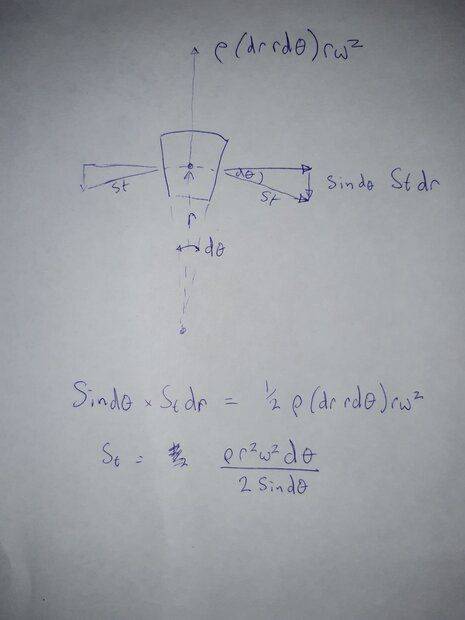 ρ(dr rdθ)rω²
dθ
St
St
Sindθ St dr
r
dθ
Sindθ × St dr = ½ ρ(dr rdθ)rω²
St = ρr²ω²dθ / 2 Sindθ